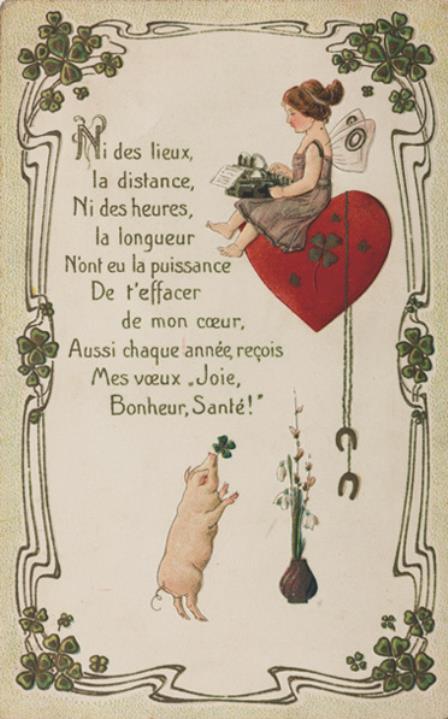 Ni des lieux,
la distance,
Ni des heures,
la longueur
N'ont eu la puissance
De t'effacer
de mon cœur,
Aussi chaque année, reçois
Mes vœux „Joie,
Bonheur, Santé!"